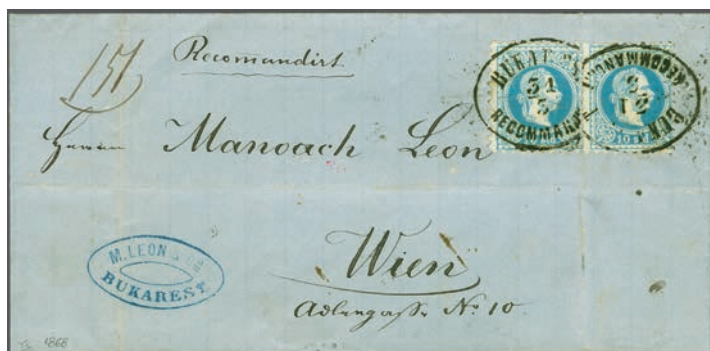 151
Recomandirt
BUKAREST
31
3
RECOMMANDIRT
2
12
RECOMMANDIRT
10
Herrn Manoach Leon
M. LEON &
BUKAREST
Wien
Adlergasse No. 10
1868